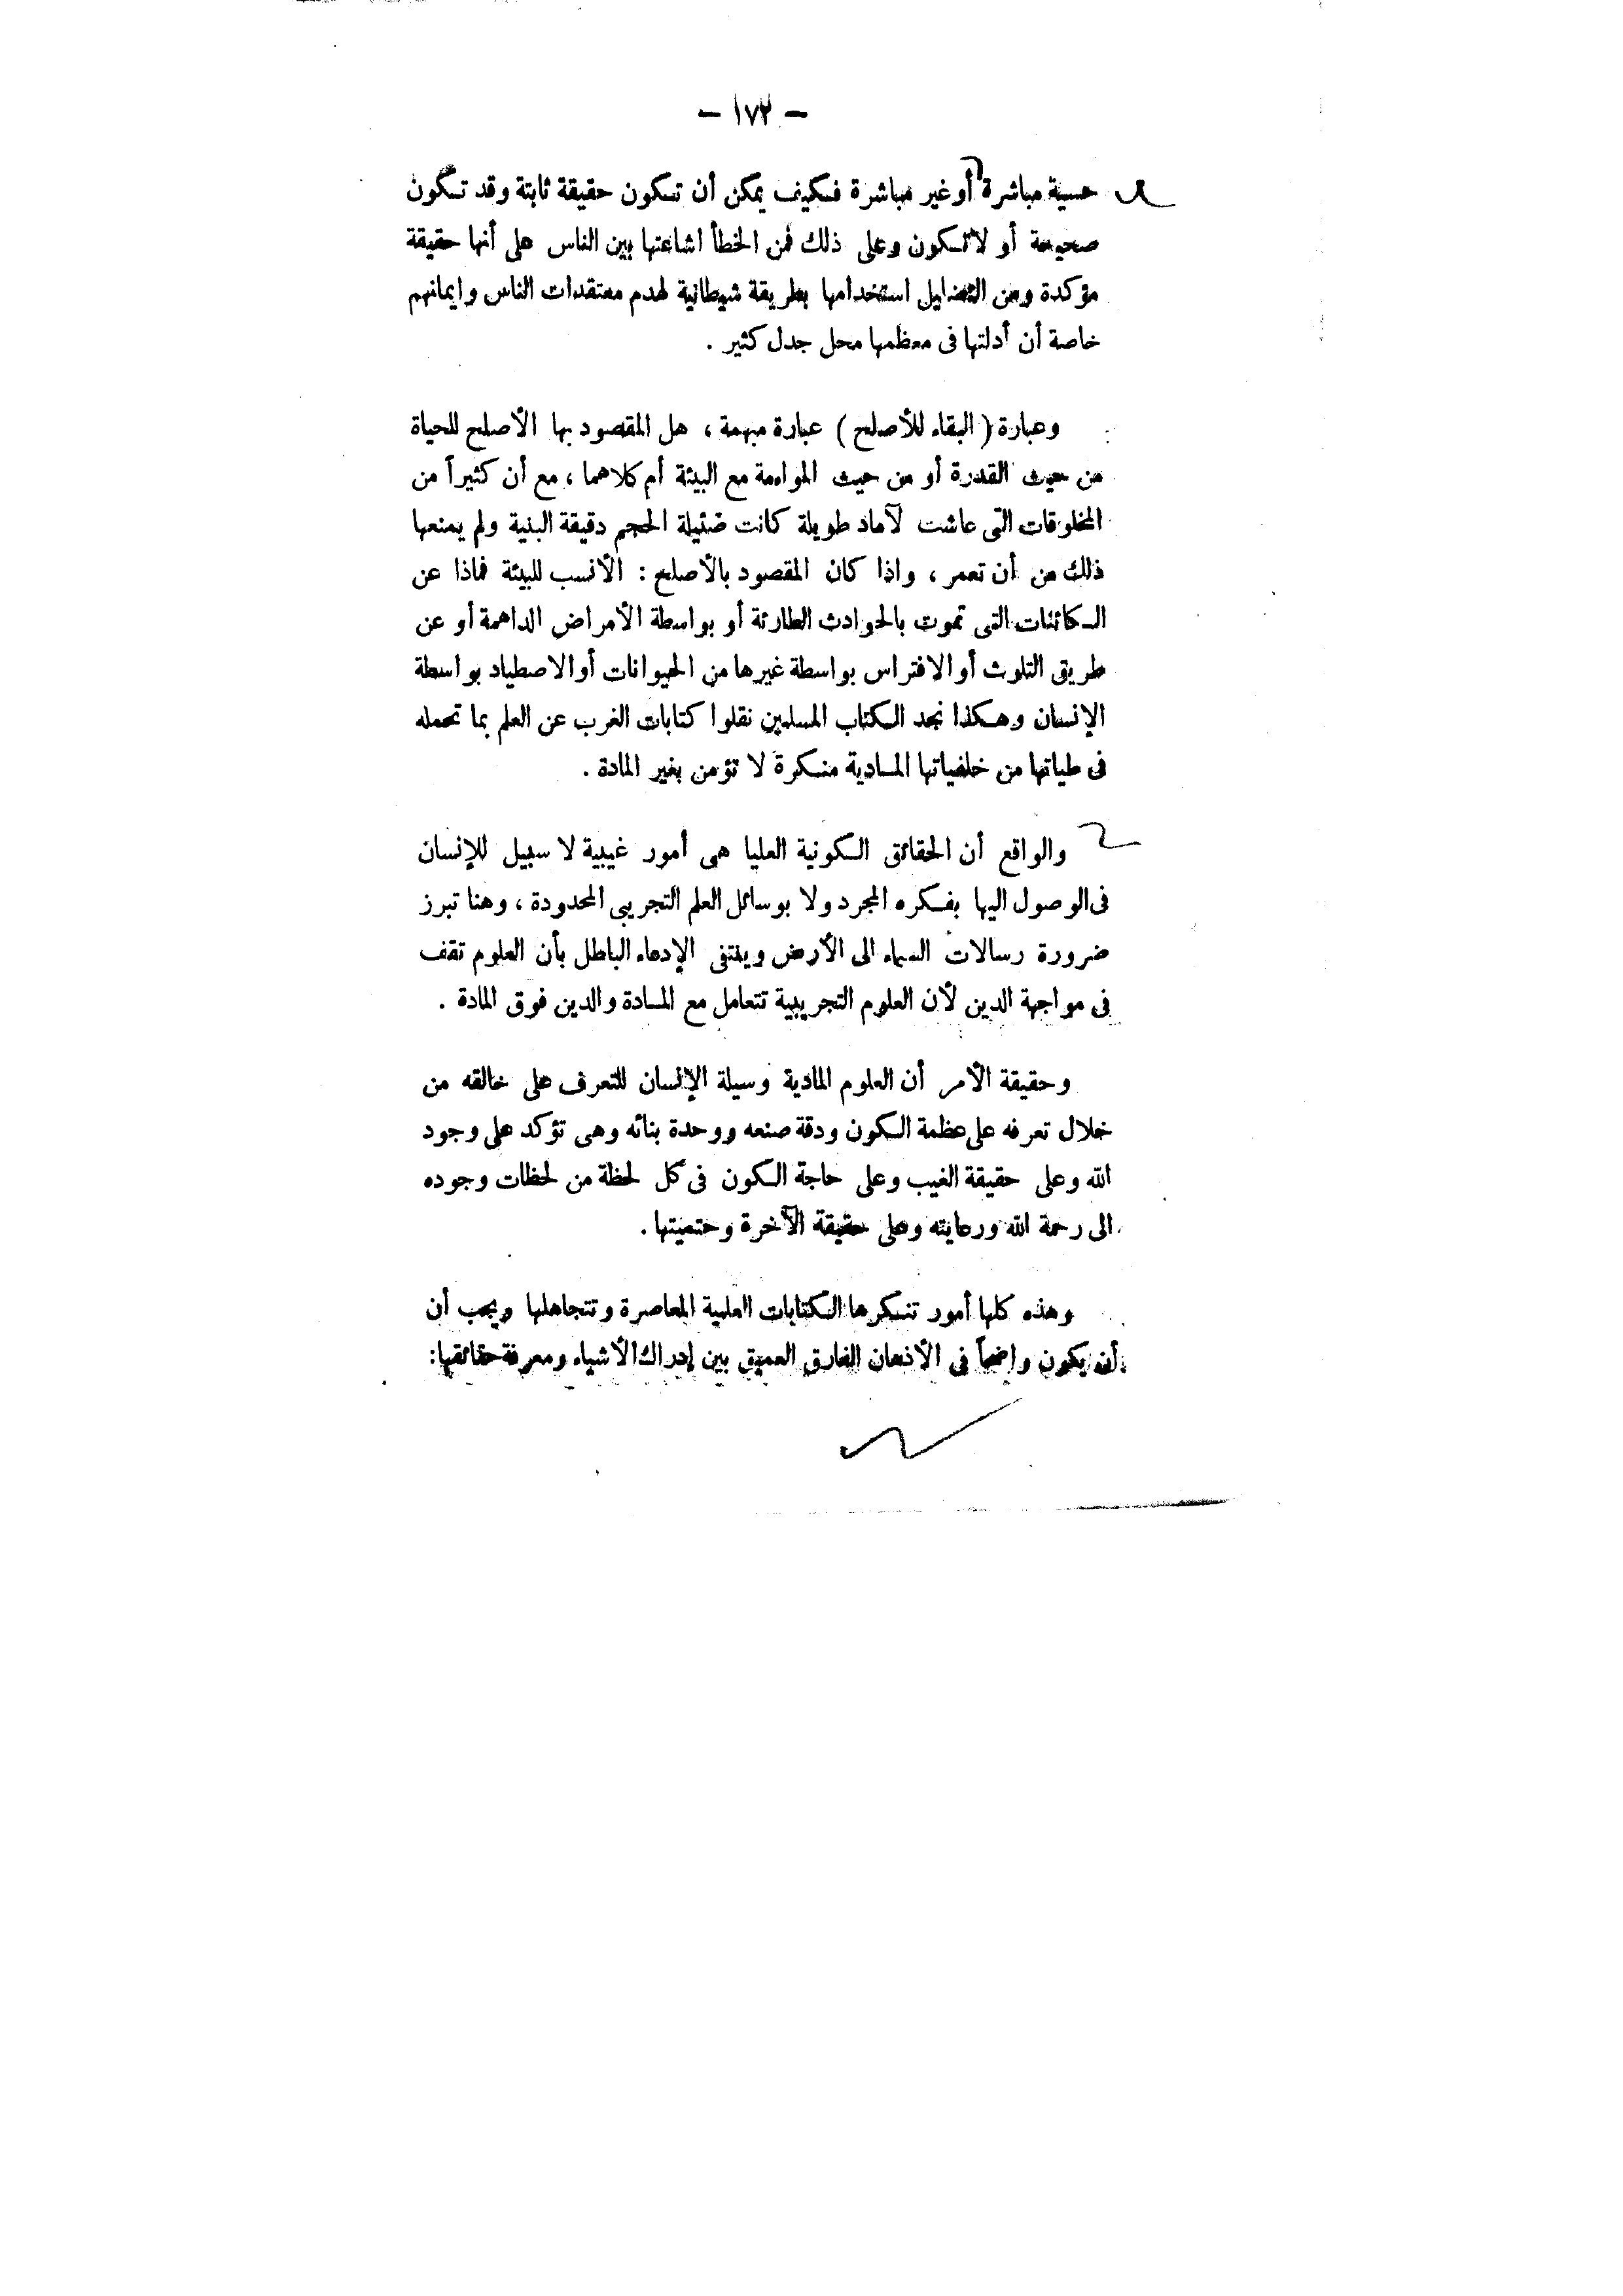 — ١٧٢ —
حسية مباشرة أو غير مباشرة فكيف يمكن أن تكون حقيقة ثابتة وقد تكون
صحيحة أو لا تكون وعلى ذلك فمن الخطأ اشاعتها بين الناس على أنها حقيقة
مؤكدة ومن التضليل استخدامها بطريقة شيطانية لهدم معتقدات الناس وايمانهم
خاصة أن أدلتها فى معظمها محل جدل كثير .
وعبارة ( البقاء للأصلح ) عبارة مبهمة ، هل المقصود بها الأصلح للحياة
من حيث القدرة أو من حيث المواءمة مع البيئة أم كلاهما ، مع أن كثيراً من
المخلوقات التى عاشت لآماد طويلة كانت ضئيلة الحجم دقيقة البنية ولم يمنعها
ذلك من أن تعمر ، واذا كان المقصود بالأصلح : الأنسب للبيئة فماذا عن
الكائنات التى تموت بالحوادث الطارئة أو بواسطة الأمراض الداهمة أو عن
طريق التلوث أو الافتراس بواسطة غيرها من الحيوانات أو الاصطياد بواسطة
الإنسان وهكذا نجد الكتاب المسلمين نقلوا كتابات الغرب عن العلم بما تحمله
فى طياتها من خلفياتها المادية منكرة لا تؤمن بغير المادة .
والواقع أن الحقائق الكونية العليا هى أمور غيبية لا سبيل للإنسان
فى الوصول اليها بفكره المجرد ولا بوسائل العلم التجريبى المحدودة ، وهنا تبرز
ضرورة رسالات السماء الى الأرض وينتفى الإدعاء الباطل بأن العلوم تقف
فى مواجهة الدين لأن العلوم التجريبية تتعامل مع المادة والدين فوق المادة .
وحقيقة الأمر أن العلوم المادية وسيلة الإنسان للتعرف على خالقه من
خلال تعرفه على عظمة الكون ودقة صنعه ووحدة بنائه وهى تؤكد على وجود
الله وعلى حقيقة الغيب وعلى حاجة الكون فى كل لحظة من لحظات وجوده
الى رحمة الله ورعايته وعلى حقيقة الآخرة وحتميتها .
وهذه كلها أمور تنكرها الكتابات العلمية المعاصرة وتتجاهلها ويجب أن
أن يكون واضحاً فى الأذهان الفارق العميق بين إدراك الأشياء ومعرفة حقائقها :